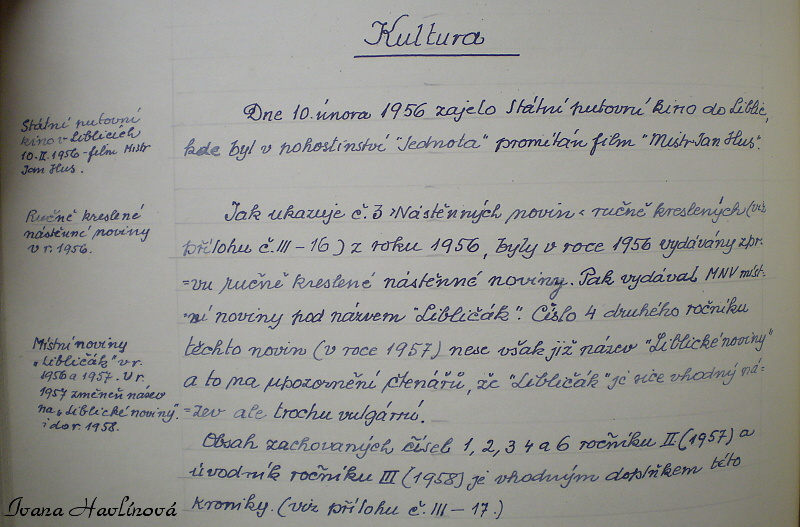 Kultura
Státní putovní
kino v Liblicích
10.II.1956 - film Mistr
Jan Hus.
Dne 10. února 1956 zajelo Státní putovní kino do Liblic,
kde byl v pohostinství "Jednota" promítán film "Mistr Jan Hus".
Ručně kreslené
nástěnné noviny
v r. 1956.
Jak ukazuje č. 3 "Nástěnných novin" ručně kreslených (viz
přílohu č. III - 16) z roku 1956, byly v roce 1956 vydávány zpr-
=vu ručně kreslené nástěnné noviny. Pak vydával MNV míst-
=ní noviny pod názvem "Libličák". Číslo 4 druhého ročníku
těchto novin (v roce 1957) nese však již název "Liblické noviny"
a to na upozornění čtenářů, že "Libličák" je sice vhodný ná-
=zev ale trochu vulgární.
Místní noviny
"Libličák" v r.
1956 a 1957. V r.
1957 změněn název
na "Liblické noviny".
i do r. 1958.
Obsah zachovaných čísel 1, 2, 3 4 a 6 ročníku II (1957) a
úvodník ročníku III (1958) je vhodným doplňkem této
kroniky. (viz přílohu č. III - 17.)
Ivana Havlínová